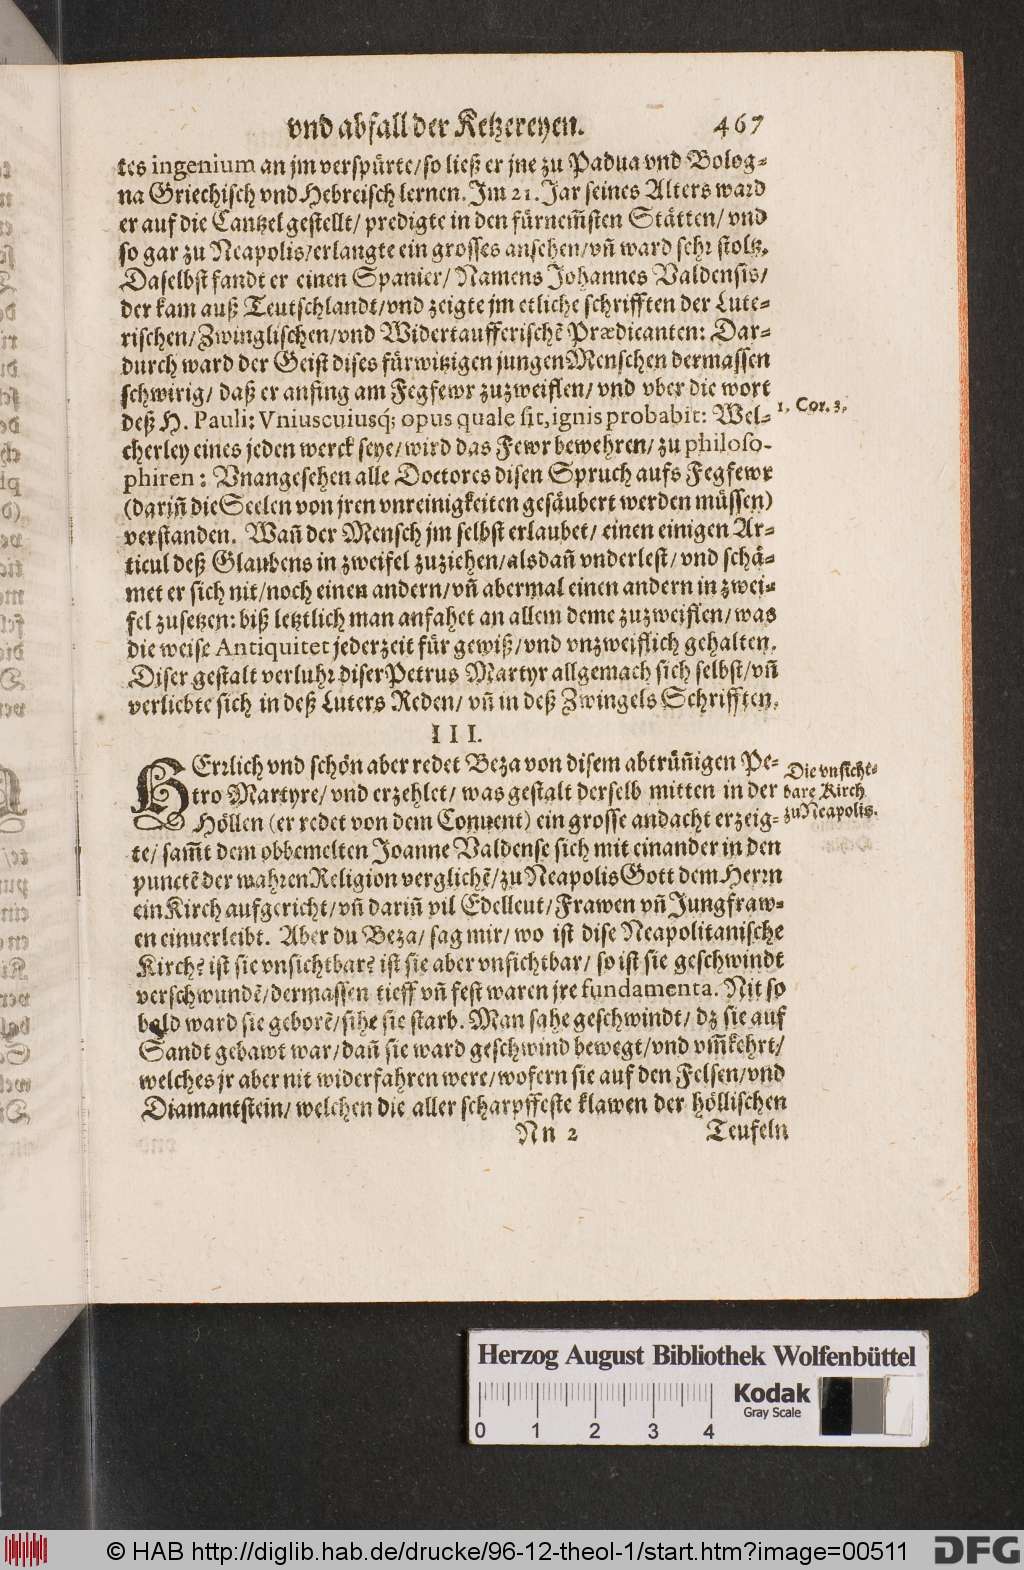 vnd abfall der Ketzereyen. 467
tes ingenium an jm verspürte/so ließ er jne zu Padua vnd Bolog-
na Griechisch vnd Hebreisch lernen. Im 21. Jar seines Alters ward
er auf die Cantzel gestellt/ predigte in den fürnem̃sten Stätten/ vnd
so gar zu Neapolis/erlangte ein grosses ansehen/vñ ward sehr stoltz.
Daselbst fandt er einen Spanier/ Namens Johannes Valdensis/
der kam auß Teutschlandt/vnd zeigte jm etliche schrifften der Lute-
rischen/Zwinglischen/vnd Widertaufferischẽ Prædicanten: Dar-
durch ward der Geist dises fürwitzigen jungen Menschen dermassen
schwirig/ daß er anfing am Fegfewr zuzweiflen/ vnd vber die wort
deß H. Pauli: Vniuscuiusq́; opus quale sit, ignis probabit: Wel-
1. Cor. 3.
cherley eines jeden werck seye/wird das Fewr bewehren/ zu philoso-
phiren: Vnangesehen alle Doctores disen Spruch aufs Fegfewr
(dariñ die Seelen von jren vnreinigkeiten gesäubert werden müssen)
verstanden. Wañ der Mensch jm selbst erlaubet/ einen einigen Ar-
ticul deß Glaubens in zweifel zuziehen/alsdañ vnderlest/ vnd schä-
met er sich nit/noch einen andern/vñ abermal einen andern in zwei-
fel zusetzen: biß letztlich man anfahet an allem deme zuzweiflen/ was
die weise Antiquitet jederzeit für gewiß/vnd vnzweiflich gehalten.
Diser gestalt verluhr diser Petrus Martyr allgemach sich selbst/vñ
verliebte sich in deß Luters Reden/ vñ in deß Zwingels Schrifften.
III.
HErrlich vnd schön aber redet Beza von disem abtrüñigen Pe-
tro Martyre/ vnd erzehlet/ was gestalt derselb mitten in der
Höllen (er redet von dem Conuent) ein grosse andacht erzeig-
Die vnsicht-
bare Kirch
zu Neapolis.
te/ sam̃t dem obbemelten Joanne Valdense sich mit einander in den
punctẽ der wahren Religion verglichẽ/ zu Neapolis Gott dem Herrn
ein Kirch aufgericht/ vñ dariñ vil Edelleut/ Frawen vñ Jungfraw-
en einuerleibt. Aber du Beza/ sag mir/ wo ist dise Neapolitanische
Kirch? ist sie vnsichtbar? ist sie aber vnsichtbar/ so ist sie geschwindt
verschwundẽ/dermassen tieff vñ fest waren jre fundamenta. Nit so
bald ward sie geborẽ/sihe sie starb. Man sahe geschwindt/ dz sie auf
Sandt gebawt war/dañ sie ward geschwind bewegt/vnd vm̃kehrt/
welches jr aber nit widerfahren were/wofern sie auf den Felsen/vnd
Diamantstein/ welchen die aller scharpffeste klawen der höllischen
Nn 2 Teufeln
Herzog August Bibliothek Wolfenbüttel
0 1 2 3 4
Kodak
Gray Scale
© HAB http://diglib.hab.de/drucke/96-12-theol-1/start.htm?image=00511
DFG